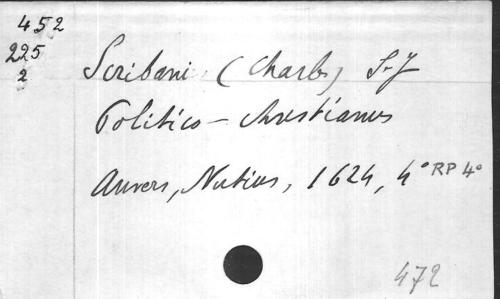 452
225
2
Scribani (Charles) S.J
Politico – christianus
Anvers, Nutius, 1624, 4° RP 4°
472